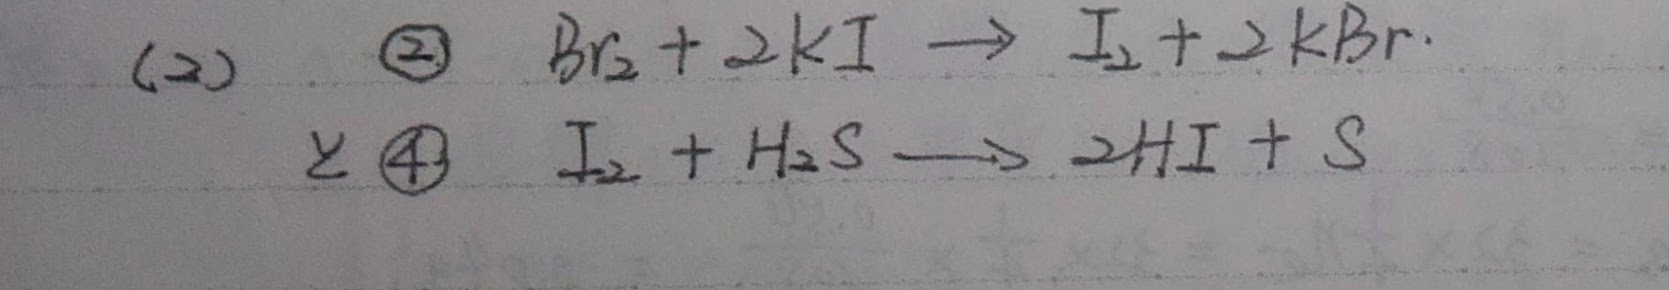 (2) ② Br₂ + 2KI → I₂ + 2KBr.
と ④ I₂ + H₂S → 2HI + S